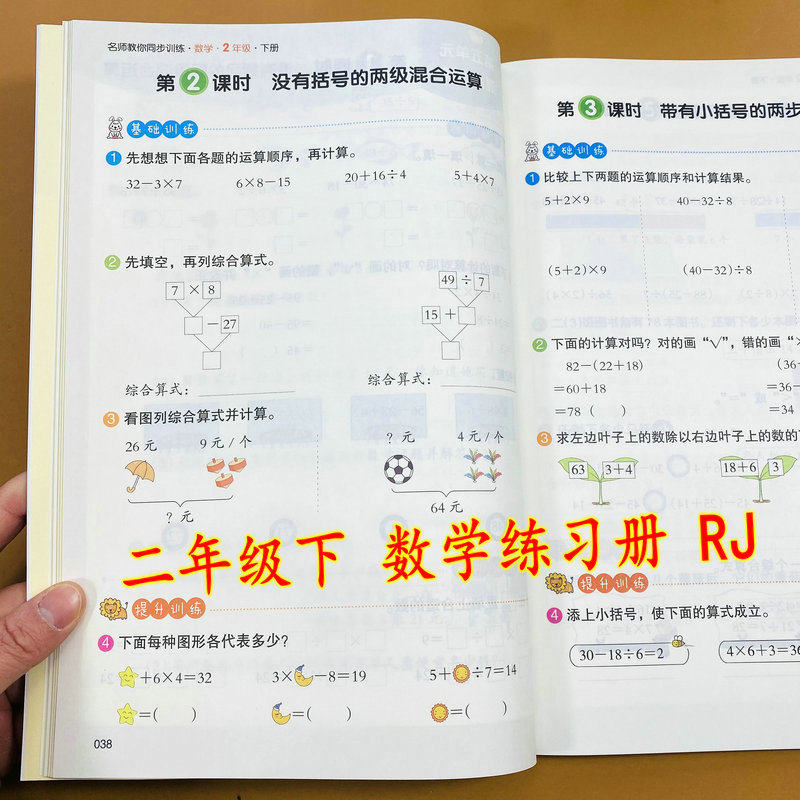 名师教你同步训练·数学·2年级·下册
第2课时 没有括号的两级混合运算
基础训练
1 先想想下面各题的运算顺序，再计算。
32－3×7 6×8－15 20＋16÷4 5＋4×7
2 先填空，再列综合算式。
7 × 8 49 ÷ 7
－ 27 15 ＋
综合算式： 综合算式：
3 看图列综合算式并计算。
26元 9元/个 ？元 4元/个
？元 64元
提升训练
4 下面每种图形各代表多少？
＋6×4＝32 3× －8＝19 5＋ ÷7＝14
＝( ) ＝( ) ＝( )
038
第3课时 带有小括号的两步
基础训练
1 比较上下两题的运算顺序和计算结果。
5＋2×9 40－32÷8
(5＋2)×9 (40－32)÷8
2 下面的计算对吗？对的画“√”，错的画“×
82－(22＋18) (36
＝60＋18 ＝36
＝78 ( ) ＝34
3 求左边叶子上的数除以右边叶子上的数的
63 3＋4 18＋6 3
提升训练
4 添上小括号，使下面的算式成立。
30－18÷6＝2 4×6＋3＝36
二年级下 数学练习册 RJ